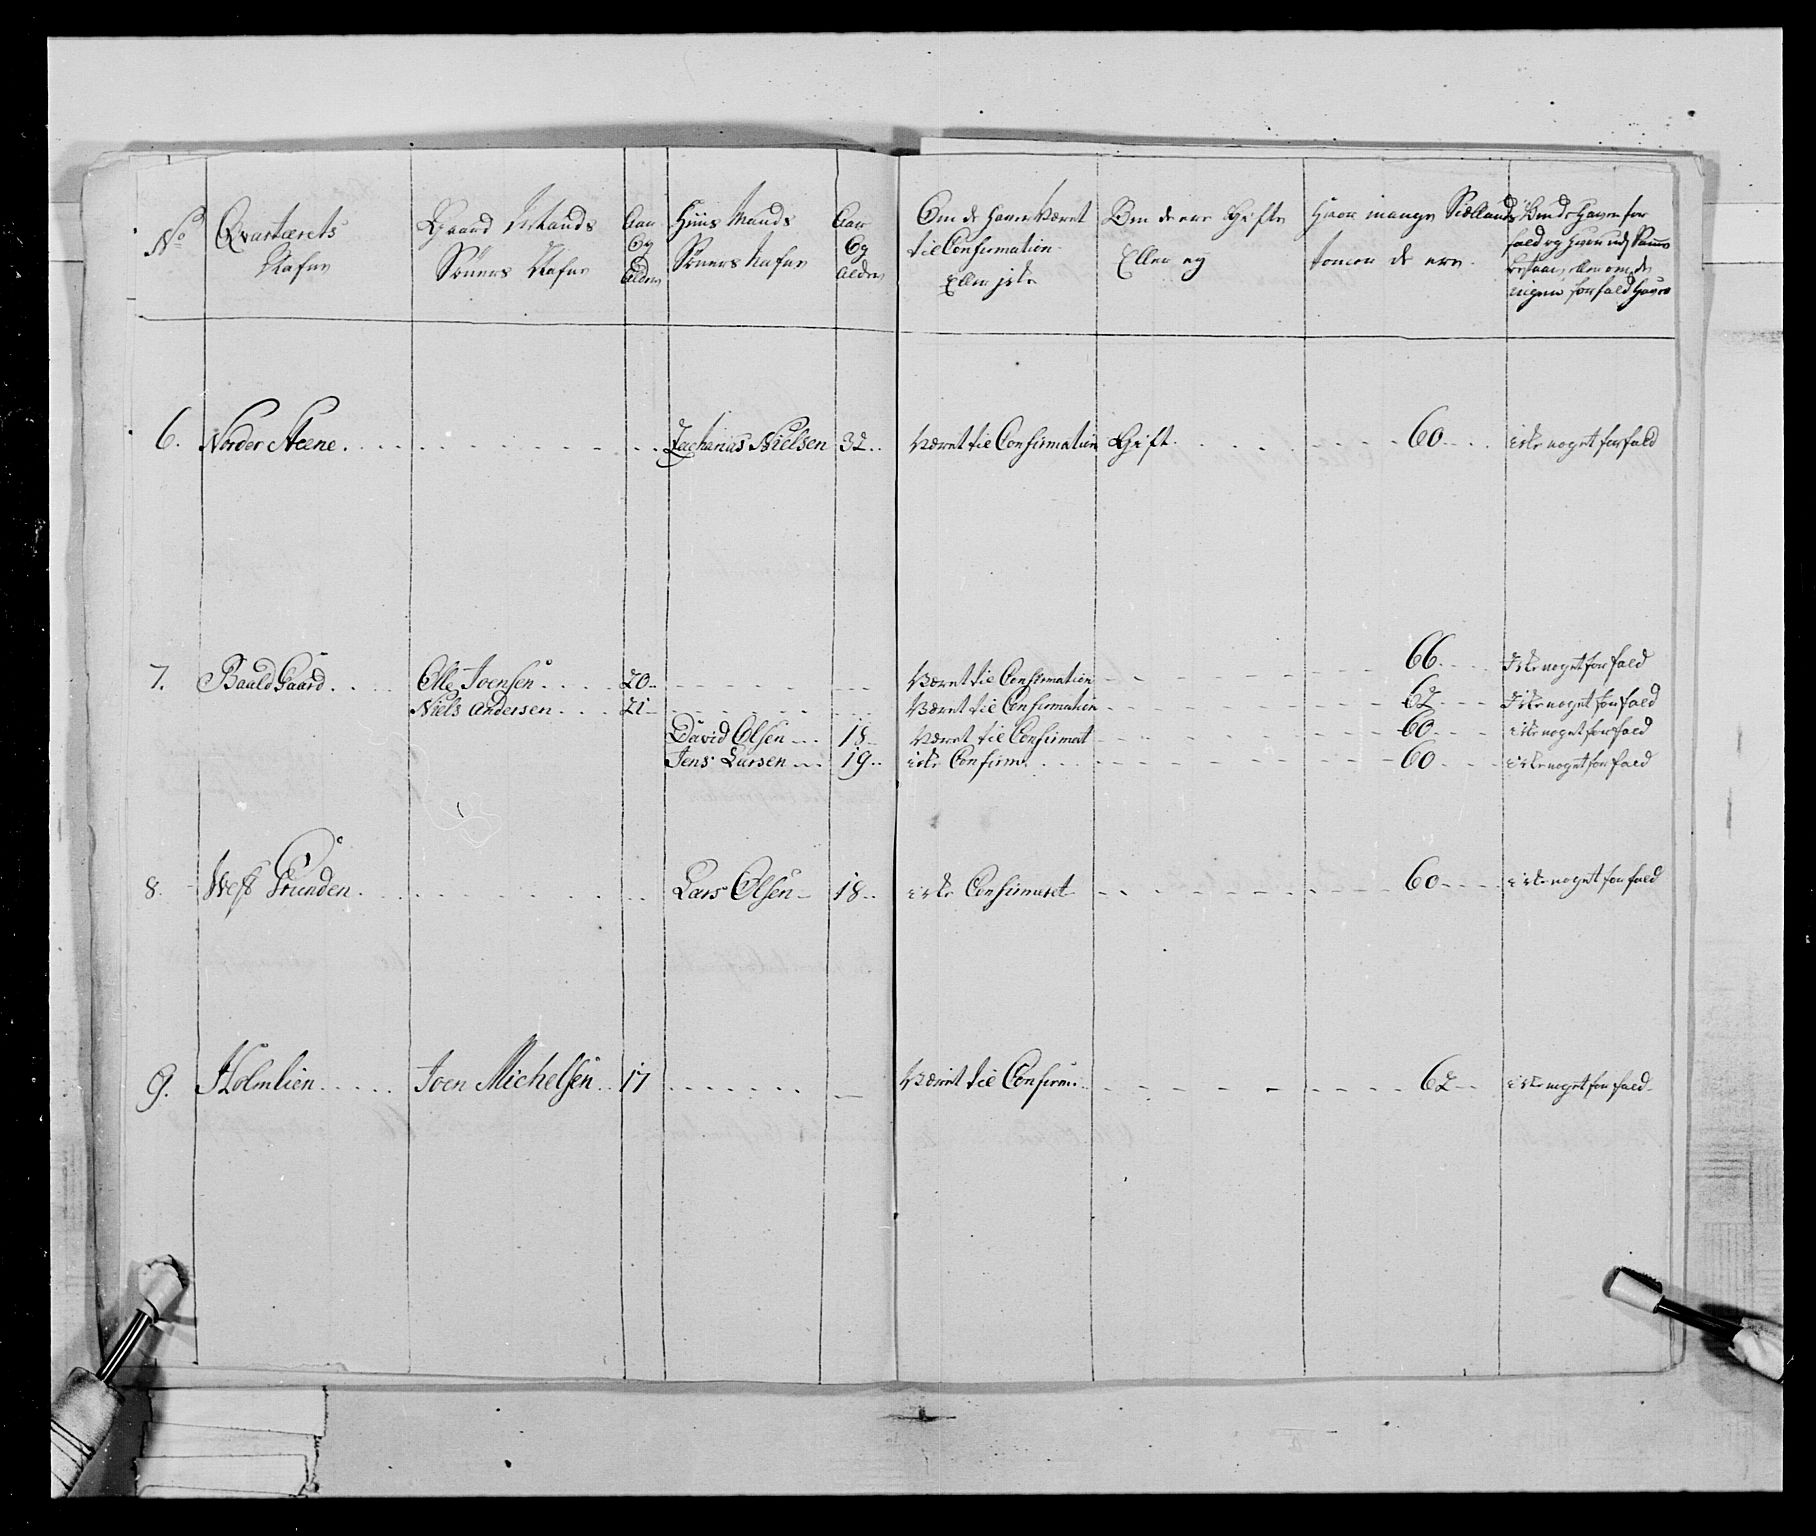 No
Qvartærets
Nafne
Gaard Mands
Sönners Nafne
Aar
Og
Alder
Huus Mands
Sönners Nafne
Aar
Og
Alder
Om de haver Været
til Confirmation
Eller icke
Om de ere Gifte
Eller ey
Hvor mange Siællands
tommer de ere
Om de haver for
fald og hvor udj samme
bestaar, eller om de
ingen forfald haver
6. Norder Steene Zacharias Nielsen 32 Været til Confirmation Gift 60 icke noget forfald
7. Baald Gaard Olle Joensen 20 Været til Confirmation 66 Icke noget forfald
Niels Andersen 21 Været til Confirmation 62 Icke noget forfald
David Olsen 18 Været til Confirmat 60 icke noget forfald
Jens Larsen 19 icke Confirm. 60 icke noget forfald
8. West Grunden Lars Olsen 18 icke Confirmeret 60 icke noget forfald
9. Holmlien Joen Michelsen 17 Været til Confirm. 62 icke noget forfald